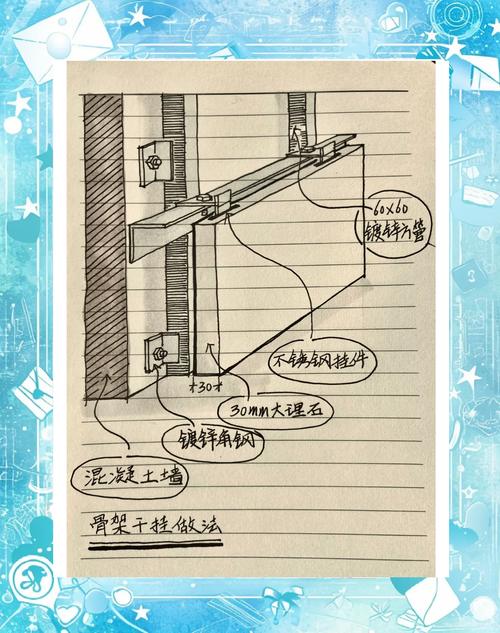 60×60
镀锌方管
不锈钢挂件
30
30mm大理石
镀锌角钢
混凝土墙
骨架干挂做法